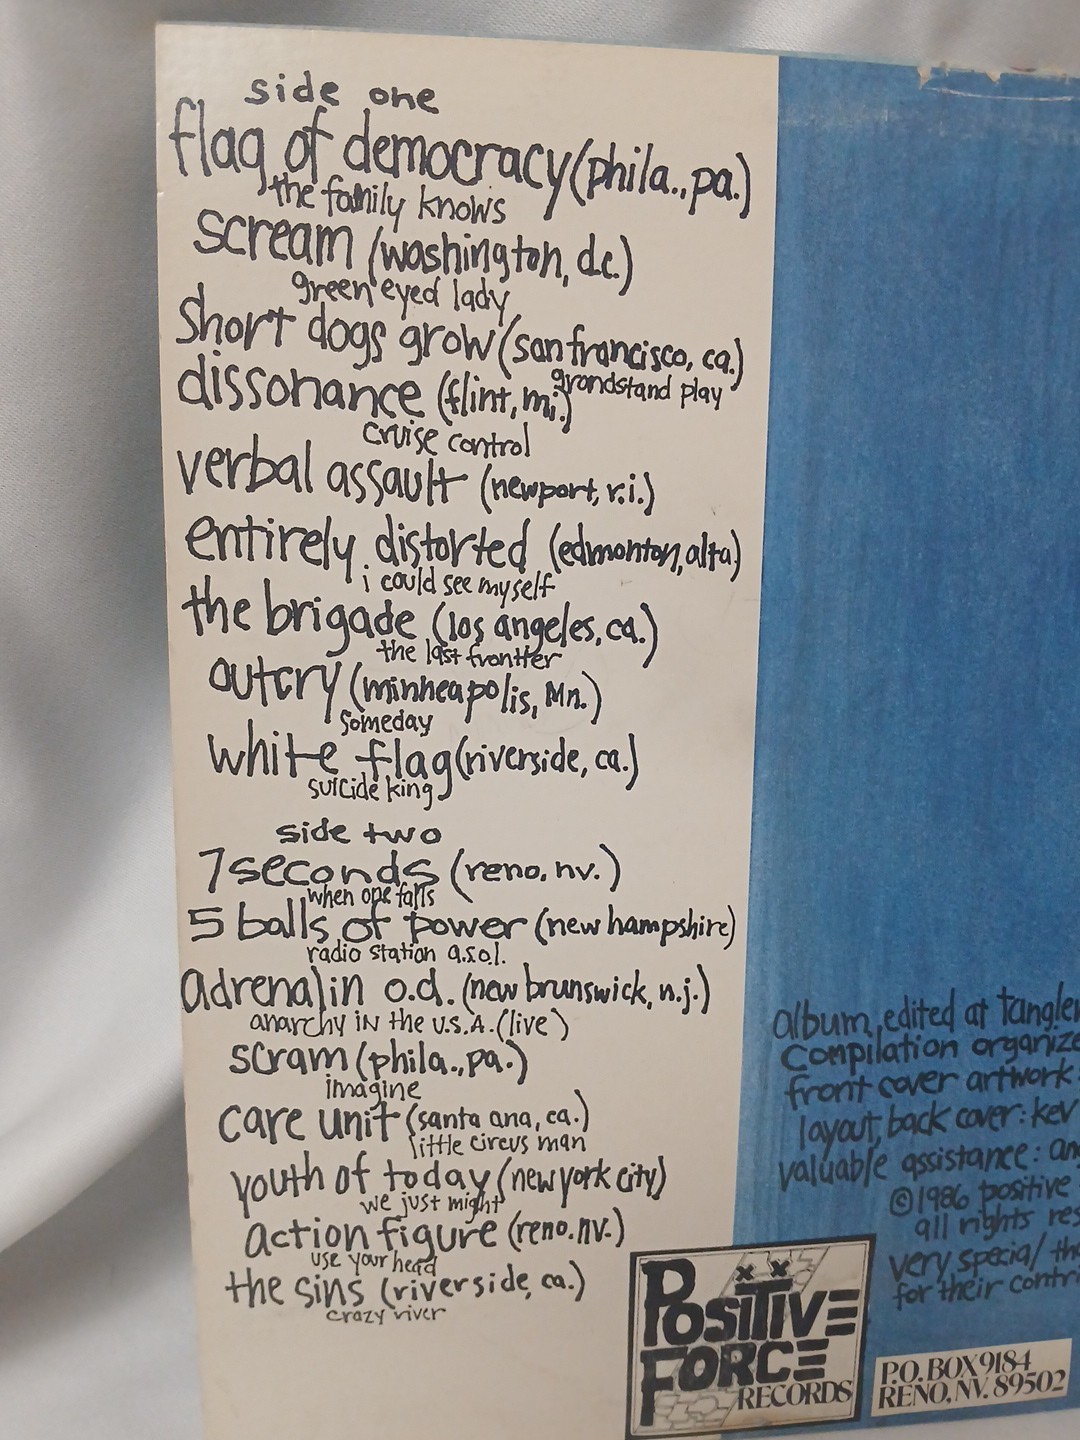 side one
flag of democracy (phila., pa.)
the family knows
scream (washington, d.c.)
green eyed lady
short dogs grow (san francisco, ca.)
grandstand play
dissonance (flint, mi.)
cruise control
verbal assault (newport, r.i.)
entirely distorted (edmonton, alta.)
i could see myself
the brigade (los angeles, ca.)
the last frontier
outcry (minneapolis, Mn.)
someday
white flag (riverside, ca.)
suicide king
side two
7 seconds (reno, nv.)
when one falls
5 balls of power (new hampshire)
radio station a.s.o.l.
adrenalin o.d. (new brunswick, n.j.)
anarchy in the u.s.a. (live)
scram (phila., pa.)
imagine
care unit (santa ana, ca.)
little circus man
youth of today (new york city)
we just might
action figure (reno. nv.)
use your head
the sins (riverside, ca.)
crazy river
album edited at
compilation
front cover artwork
layout, back cover: kev
valuable assistance:
©1986 positive
all rights
very special
for their
POSITIVE
FORCE
RECORDS
P.O. BOX 9184
RENO, NV. 89502